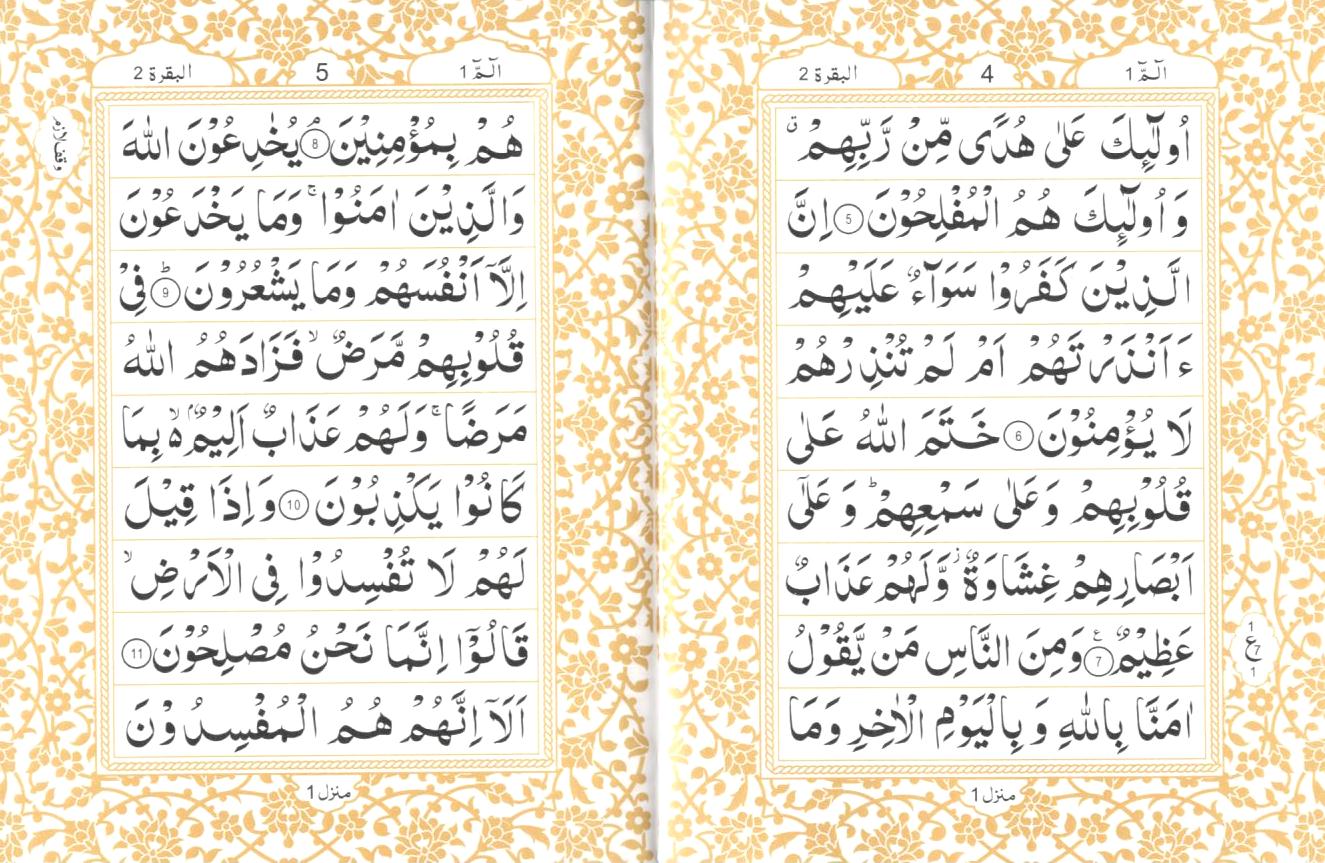 الٓمّٓ 1
4
البقرة 2
اُولٰٓئِكَ عَلٰى هُدًى مِّنْ رَّبِّهِمْ ۗ
وَ اُولٰٓئِكَ هُمُ الْمُفْلِحُوْنَ 5 اِنَّ
الَّذِيْنَ كَفَرُوْا سَوَآءٌ عَلَيْهِمْ
ءَاَنْذَرْتَهُمْ اَمْ لَمْ تُنْذِرْهُمْ
لَا يُؤْمِنُوْنَ 6 خَتَمَ اللّٰهُ عَلٰى
قُلُوْبِهِمْ وَعَلٰى سَمْعِهِمْ ؕ وَ عَلٰٓى
اَبْصَارِهِمْ غِشَاوَةٌ ز وَّلَهُمْ عَذَابٌ
عَظِيْمٌ 7 ع وَمِنَ النَّاسِ مَنْ يَّقُوْلُ
اٰمَنَّا بِاللّٰهِ وَ بِالْيَوْمِ الْاٰخِرِ وَمَا
1
ع 7
1
منزل 1
الٓمّٓ 1
5
البقرة 2
هُمْ بِمُؤْمِنِيْنَ ۘ 8 يُخٰدِعُوْنَ اللّٰهَ
وَالَّذِيْنَ اٰمَنُوْا ۚ وَمَا يَخْدَعُوْنَ
اِلَّآ اَنْفُسَهُمْ وَمَا يَشْعُرُوْنَ ؕ 9 فِيْ
قُلُوْبِهِمْ مَّرَضٌ ۙ فَزَادَهُمُ اللّٰهُ
مَرَضًا ۚ وَلَهُمْ عَذَابٌ اَلِيْمٌۢ ۙ۬ بِمَا
كَانُوْا يَكْذِبُوْنَ 10 وَاِذَا قِيْلَ
لَهُمْ لَا تُفْسِدُوْا فِى الْاَرْضِ ۙ
قَالُوْٓا اِنَّمَا نَحْنُ مُصْلِحُوْنَ 11
اَلَآ اِنَّهُمْ هُمُ الْمُفْسِدُوْنَ
وقف لازم
منزل 1